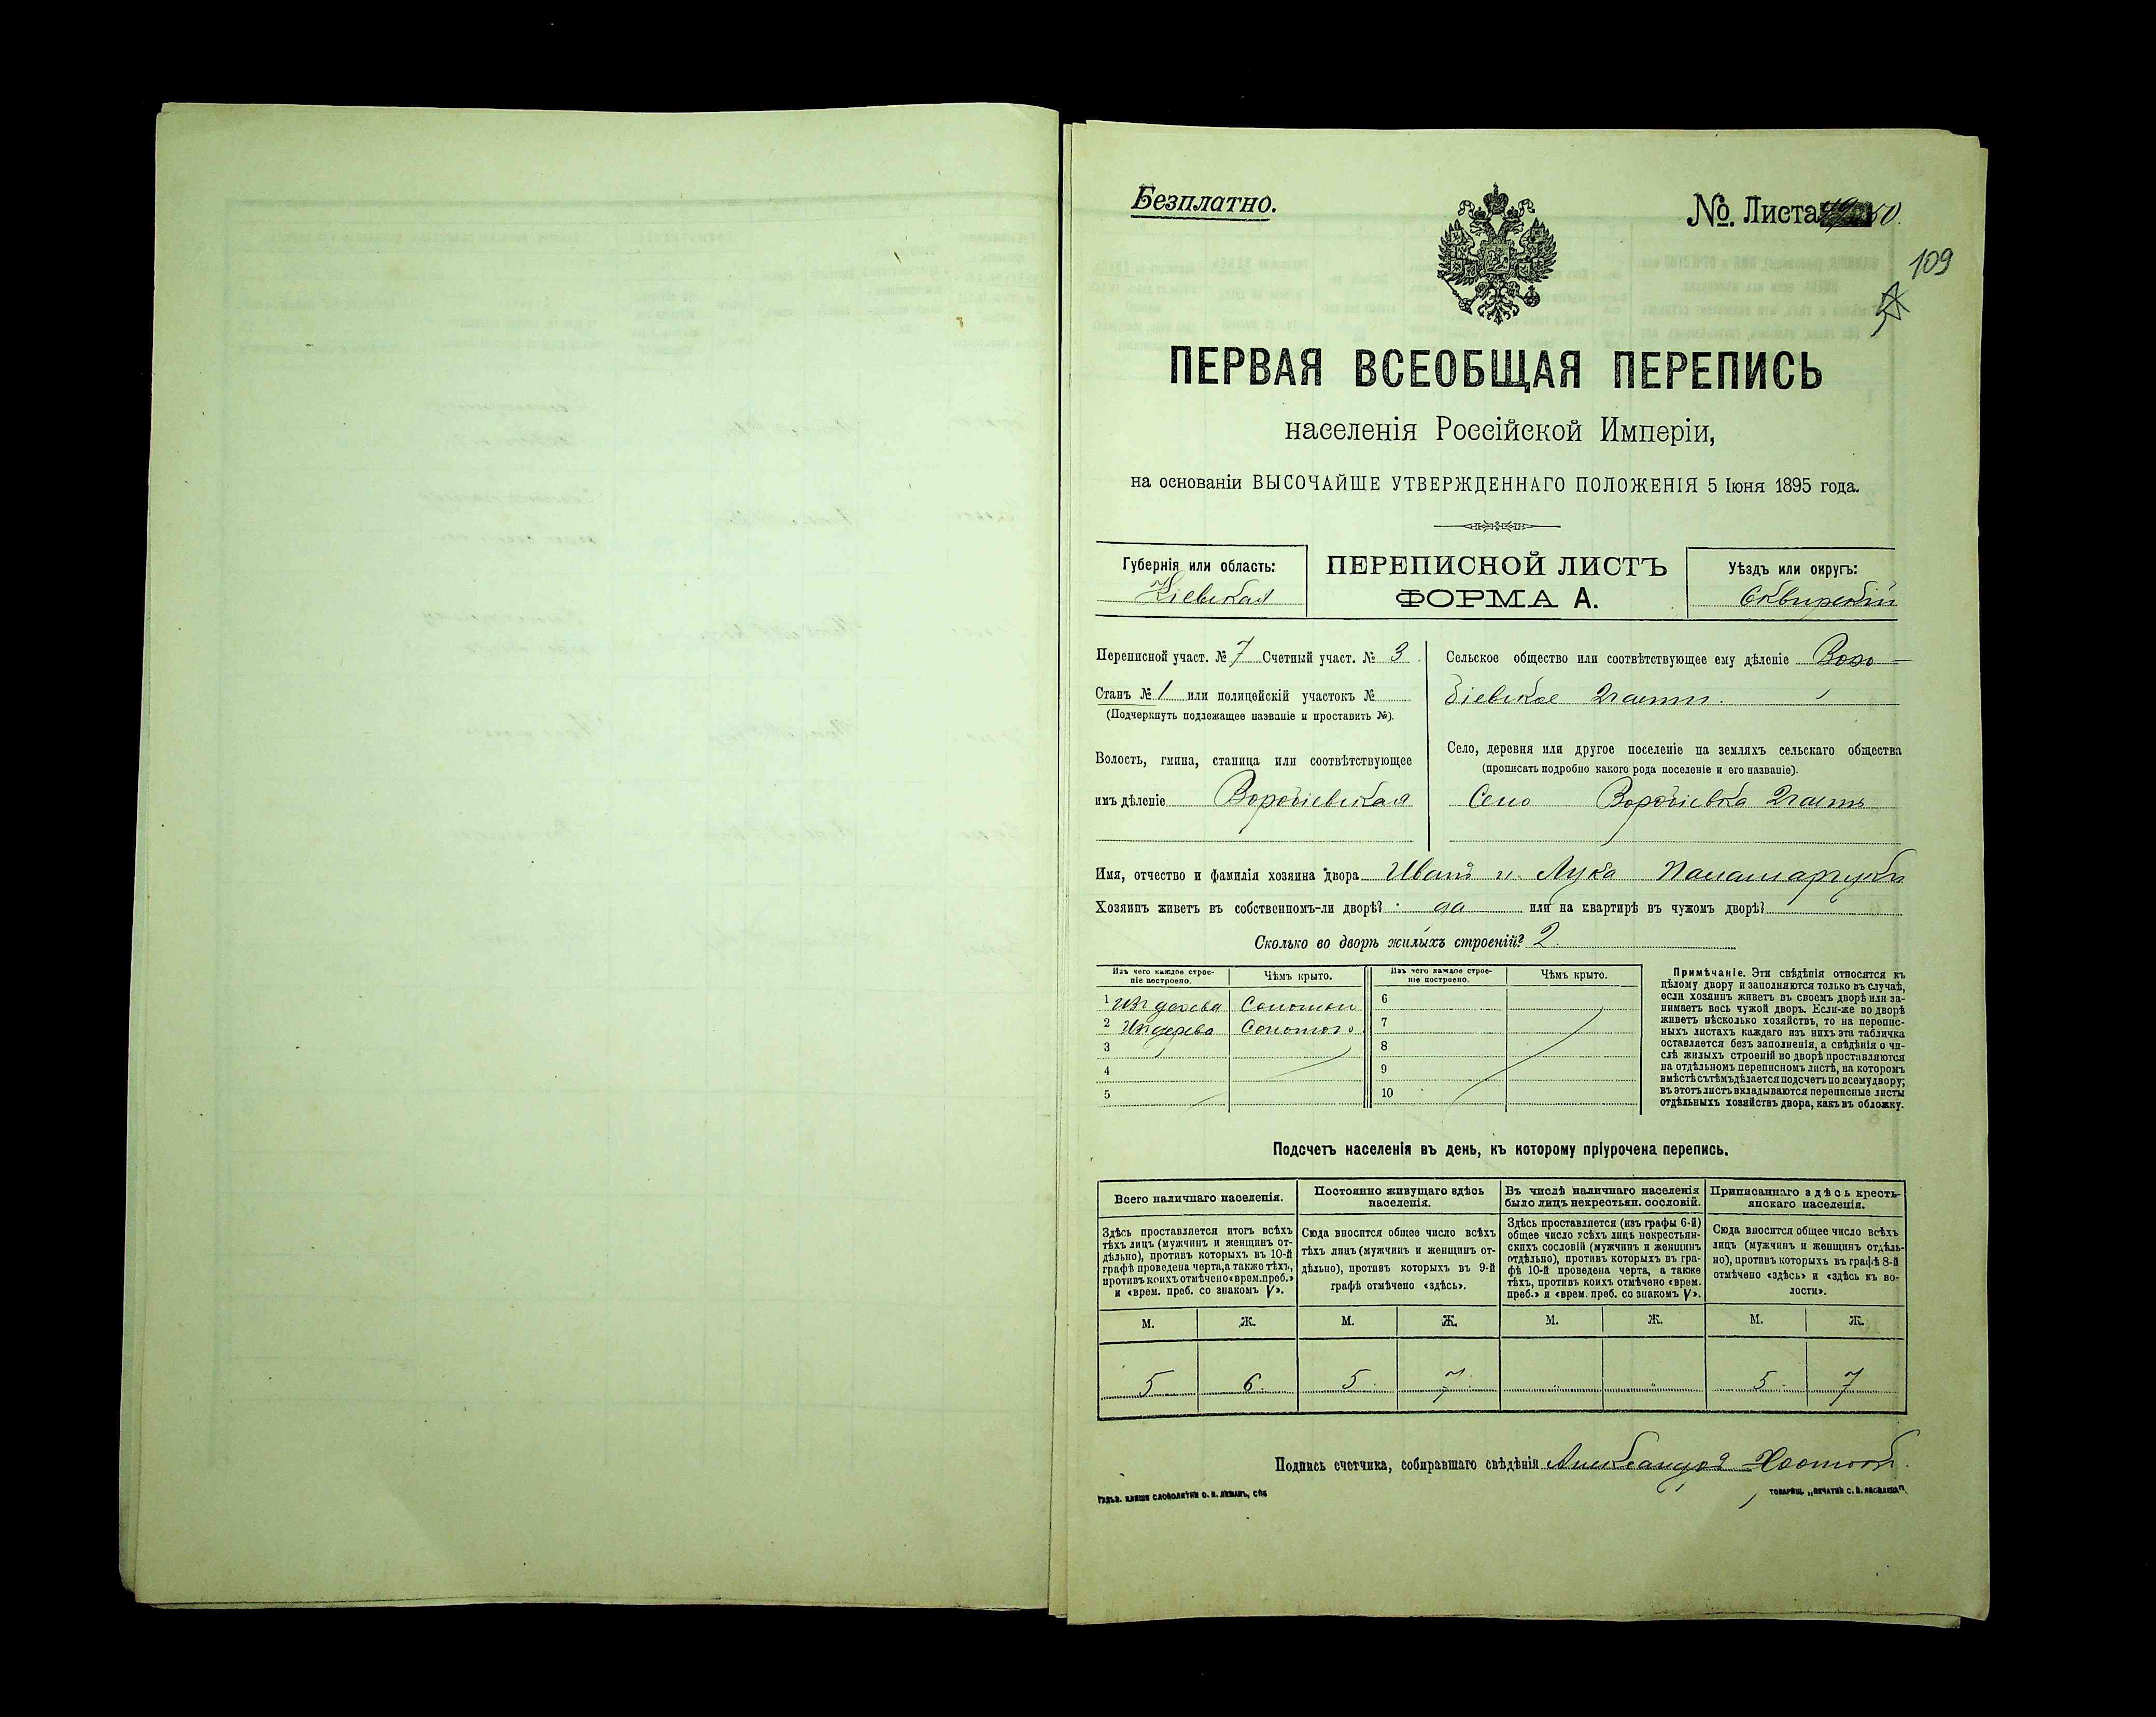 Безплатно.
№ Листа 50.
109
ПЕРВАЯ ВСЕОБЩАЯ ПЕРЕПИСЬ
населенія Россійской Имперіи,
на основаніи ВЫСОЧАЙШЕ УТВЕРЖДЕННАГО ПОЛОЖЕНІЯ 5 Іюня 1895 года.
Губернія или область:
Кіевская
ПЕРЕПИСНОЙ ЛИСТЪ
ФОРМА А.
Уѣздъ или округъ:
Сквирскій
Переписной участ. № 7 Счетный участ. № 3
Станъ № 1 или полицейскій участокъ №
(Подчеркнуть подлежащее названіе и проставить №).
Волость, гмина, станица или соотвѣтствующее
имъ дѣленіе Воробіевская
Сельское общество или соотвѣтствующее ему дѣленіе Воро-
біевское 2 части.
Село, деревня или другое поселеніе на земляхъ сельскаго общества
(прописать подробно какого рода поселеніе и его названіе).
Село Воробіевка 2 часть
Имя, отчество и фамилія хозяина двора Иванъ и Лука
Хозяинъ живетъ въ собственномъ-ли дворѣ? да или на квартирѣ въ чужомъ дворѣ?
Сколько во дворѣ жилыхъ строеній? 2.
Изъ чего каждое строе-
ніе построено.
Чѣмъ крыто.
1 изъ дерева Соломою
2 изъ дерева Соломою
3
4
5
Изъ чего каждое строе-
ніе построено.
Чѣмъ крыто.
6
7
8
9
10
Примѣчаніе. Эти свѣдѣнія относятся къ
цѣлому двору и заполняются только въ случаѣ,
если хозяинъ живетъ въ своемъ дворѣ или за-
нимаетъ весь чужой дворъ. Если-же во дворѣ
живетъ нѣсколько хозяйствъ, то на перепис-
ныхъ листахъ каждаго изъ нихъ эта табличка
оставляется безъ заполненія, а свѣдѣнія о чи-
слѣ жилыхъ строеній во дворѣ проставляются
на отдѣльномъ переписномъ листѣ, на которомъ
вмѣстѣ съ тѣмъ дѣлается подсчетъ по всему двору;
въ этотъ листъ вкладываются переписные листы
отдѣльныхъ хозяйствъ двора, какъ въ обложку.
Подсчетъ населенія въ день, къ которому пріурочена перепись.
Всего наличнаго населенія.
Здѣсь проставляется итогъ всѣхъ
тѣхъ лицъ (мужчинъ и женщинъ от-
дѣльно), противъ которыхъ въ 10-й
графѣ проведена черта, а также тѣхъ,
противъ коихъ отмѣчено «врем. преб.»
и «врем. преб. со знакомъ V».
М. Ж.
5 6
Постоянно живущаго здѣсь
населенія.
Сюда вносится общее число всѣхъ
тѣхъ лицъ (мужчинъ и женщинъ от-
дѣльно), противъ которыхъ въ 9-й
графѣ отмѣчено «здѣсь».
М. Ж.
5 7
Въ числѣ наличнаго населенія
было лицъ некрестьян. сословій.
Здѣсь проставляется (изъ графы 6-й)
общее число всѣхъ лицъ некрестьян-
скихъ сословій (мужчинъ и женщинъ
отдѣльно), противъ которыхъ въ гра-
фѣ 10-й проведена черта, а также
тѣхъ, противъ коихъ отмѣчено «врем.
преб.» и «врем. преб. со знакомъ V».
М. Ж.
" "
Приписаннаго здѣсь кресть-
янскаго населенія.
Сюда вносится общее число всѣхъ
лицъ (мужчинъ и женщинъ отдѣль-
но), противъ которыхъ въ графѣ 8-й
отмѣчено «здѣсь» и «здѣсь къ во-
лости».
М. Ж.
5 7
Подпись счетчика, собиравшаго свѣдѣнія Александръ